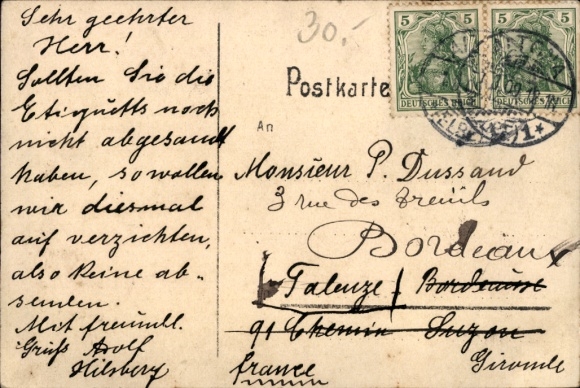 Sehr geehrter
Herr!
Sollten Sie die
Etiquetts noch
nicht abgesandt
haben, so wollen
wir diesmal
auf verzichten,
also keine ab-
senden.
Mit freundl.
Gruß Adolf
Hilsberg
30.-
Postkarte
5 5
5 5
DEUTSCHES REICH
DEUTSCHES REICH
An
Monsieur P. Dussand
3 rue des Treuils
Bordeaux
Talenze Bordeause
91 Chemin Suzon
france
Gironde